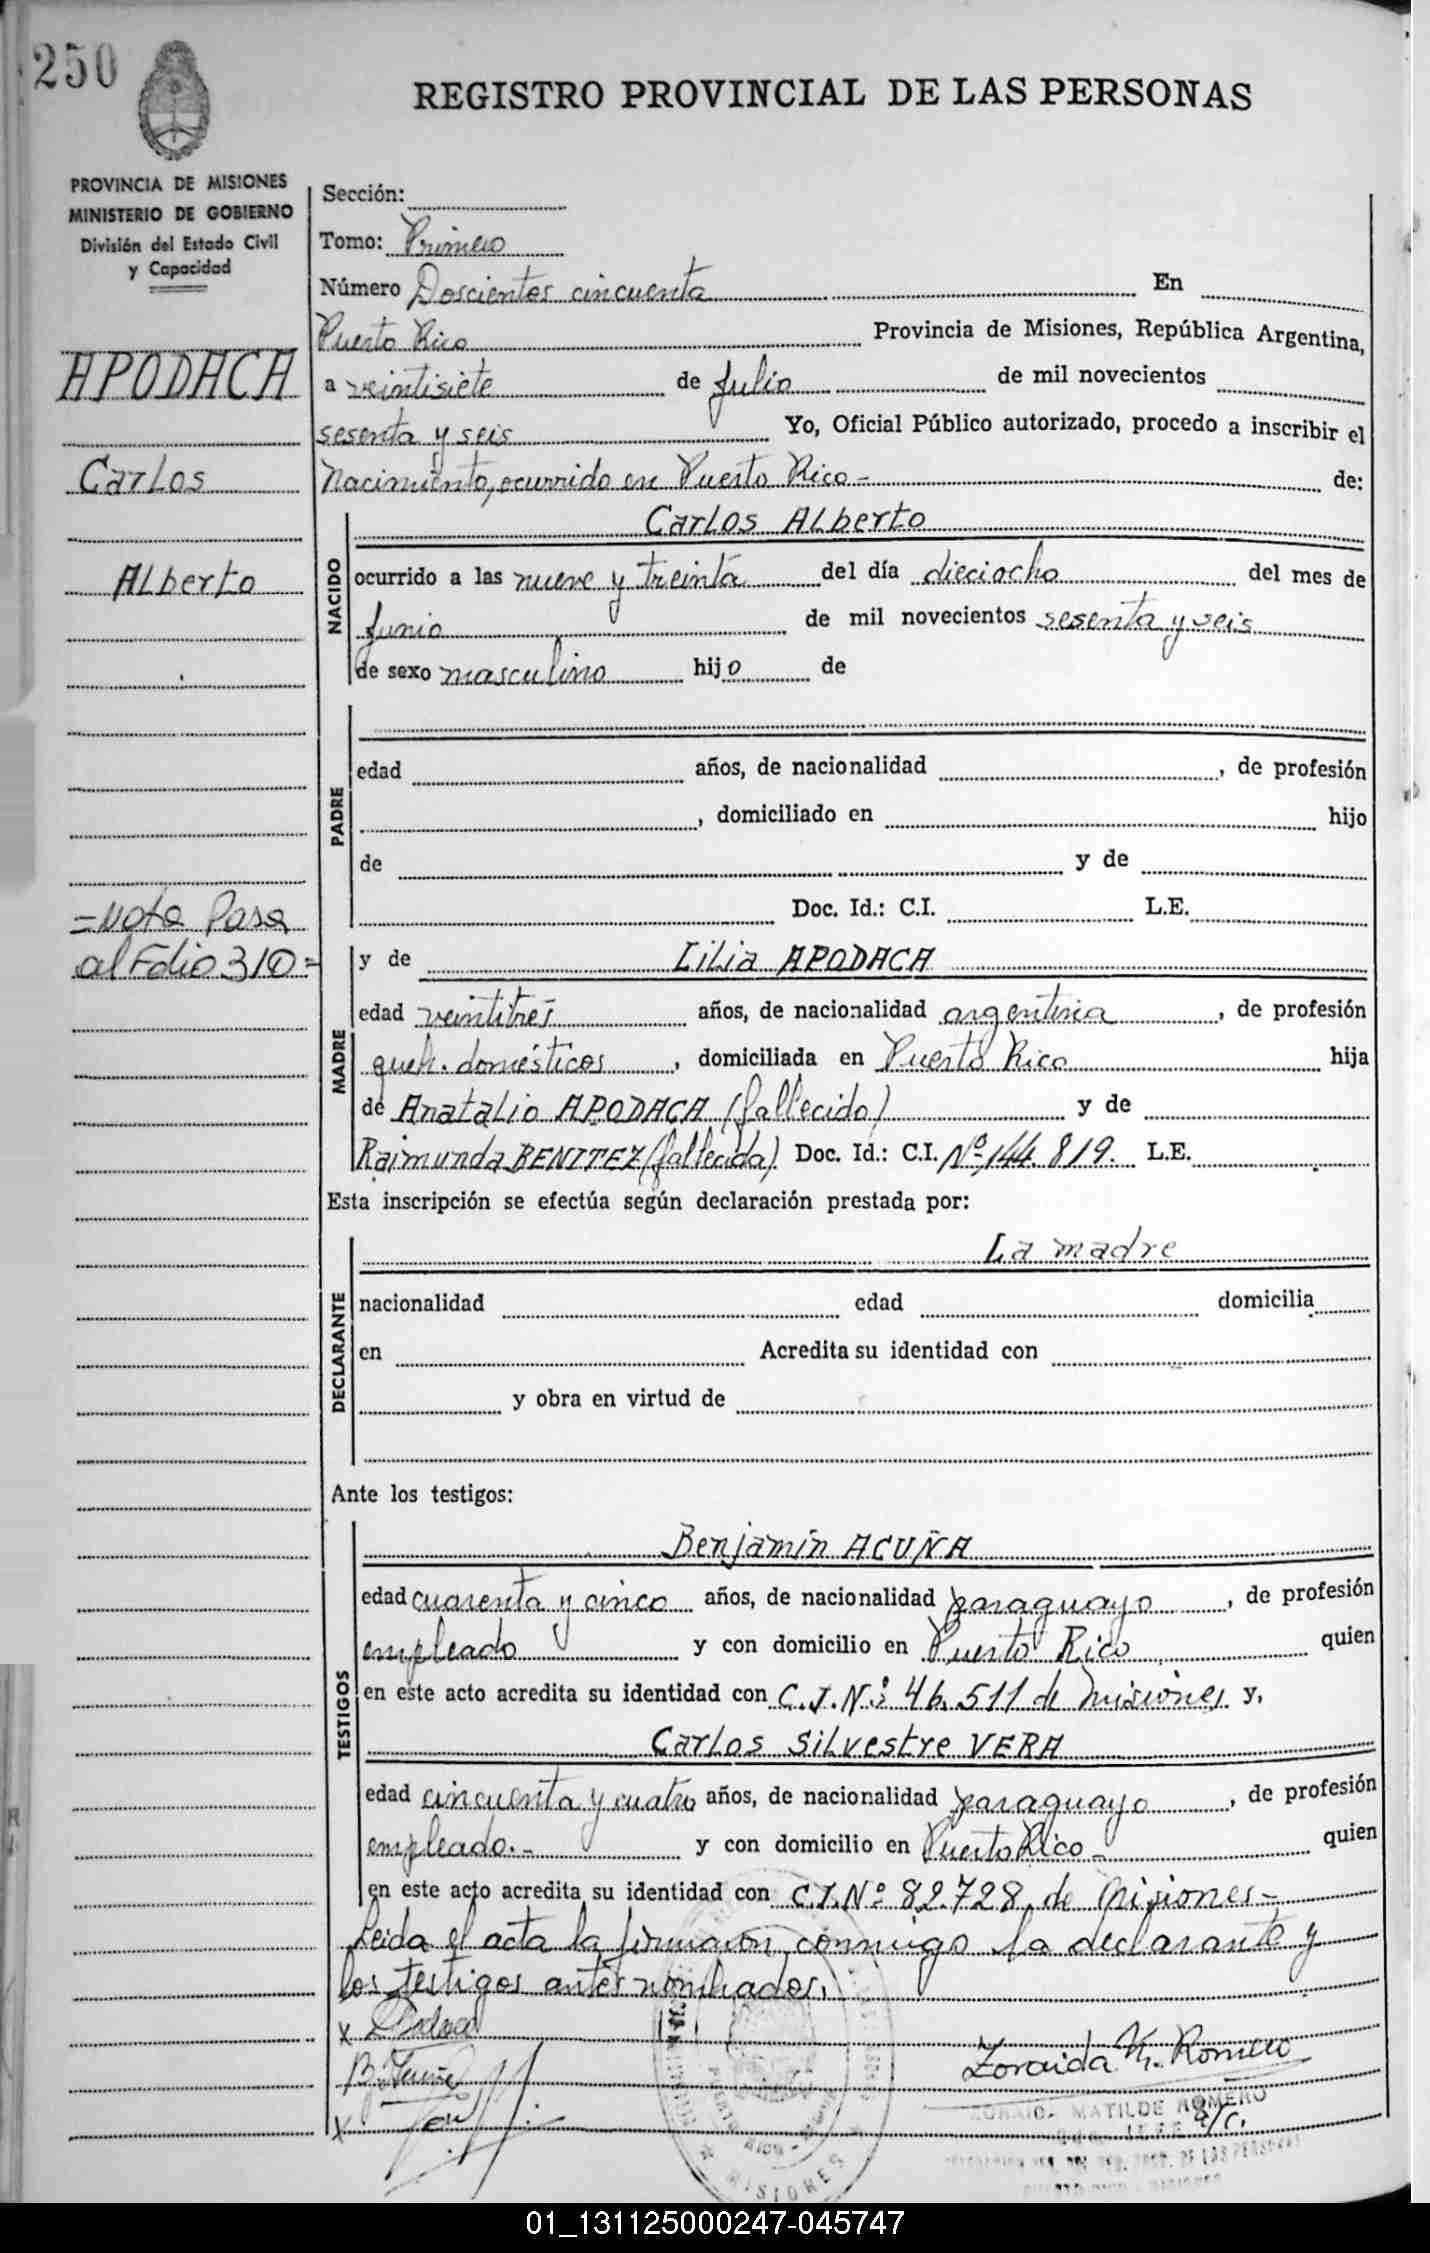 250
REGISTRO PROVINCIAL DE LAS PERSONAS
PROVINCIA DE MISIONES
MINISTERIO DE GOBIERNO
División del Estado Civil
y Capacidad
APODACA
Carlos
Alberto
=Nota Pasa
al Folio 310=
Sección:
Tomo: Primero
Número Doscientos cincuenta En
Puerto Rico Provincia de Misiones, República Argentina,
a veintisiete de Julio de mil novecientos
sesenta y seis Yo, Oficial Público autorizado, procedo a inscribir el
Nacimiento, ocurrido en Puerto Rico - de:
NACIDO
Carlos Alberto
ocurrido a las nueve y treinta del día dieciocho del mes de
Junio de mil novecientos sesenta y seis
de sexo masculino hijo de
PADRE
edad años, de nacionalidad , de profesión
, domiciliado en hijo
de y de
Doc. Id.: C.I. L.E.
MADRE
y de Lilia APODACA
edad veintitrés años, de nacionalidad argentina , de profesión
queh. domésticos , domiciliada en Puerto Rico hija
de Anatalio APODACA (fallecido) y de
Raimunda BENITEZ (fallecida) Doc. Id.: C.I. Nº 144.819. L.E.
Esta inscripción se efectúa según declaración prestada por:
DECLARANTE
La madre
nacionalidad edad domicilia
en Acredita su identidad con
y obra en virtud de
Ante los testigos:
TESTIGOS
Benjamín ACUÑA
edad cuarenta y cinco años, de nacionalidad paraguayo , de profesión
empleado y con domicilio en Puerto Rico quien
en este acto acredita su identidad con C.I. Nº 46.511 de Misiones y,
Carlos Silvestre VERA
edad cincuenta y cuatro años, de nacionalidad paraguayo , de profesión
empleado.- y con domicilio en Puerto Rico - quien
en este acto acredita su identidad con C.I. Nº 82.728 de Misiones -
Leida el acta la firmaron conmigo la declarante y
los testigos antes nombrados.
X
B. Acuña
X
Zoraida M. Romero
ZORAIDA MATILDE ROMERO
a/c.
MISIONES
01_131125000247-045747